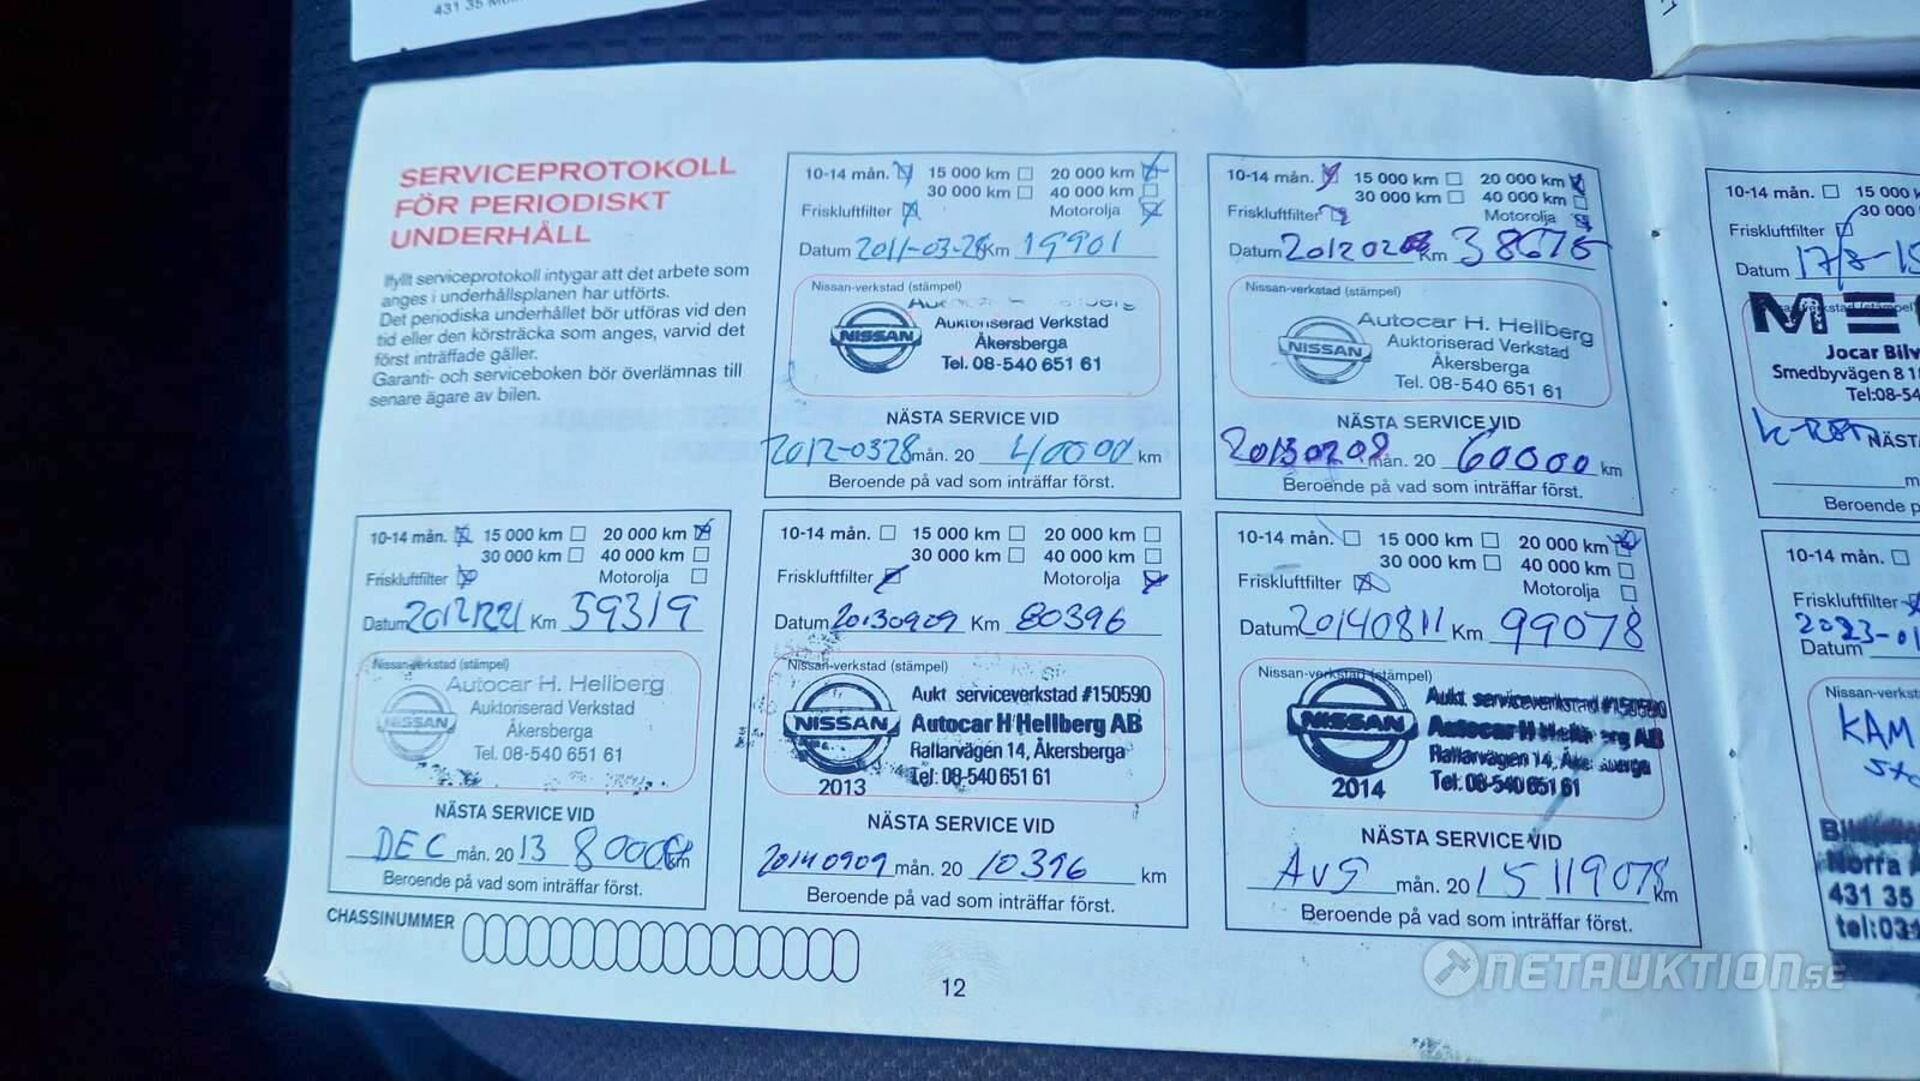 431 35
SERVICEPROTOKOLL
FÖR PERIODISKT
UNDERHÅLL
Ifyllt serviceprotokoll intygar att det arbete som
anges i underhållsplanen har utförts.
Det periodiska underhållet bör utföras vid den
tid eller den körsträcka som anges, varvid det
först inträffade gäller.
Garanti- och serviceboken bör överlämnas till
senare ägare av bilen.
10-14 mån. 15 000 km 20 000 km
30 000 km 40 000 km
Friskluftfilter Motorolja
Datum 2011-03-28 Km 19901
Nissan-verkstad (stämpel)
NISSAN
Auktoriserad Verkstad
Åkersberga
Tel. 08-540 651 61
NÄSTA SERVICE VID
2012-0328 mån. 20 40000 km
Beroende på vad som inträffar först.
10-14 mån. 15 000 km 20 000 km
30 000 km 40 000 km
Friskluftfilter Motorolja
Datum 201202 Km 38675
Nissan-verkstad (stämpel)
NISSAN
Autocar H. Hellberg
Auktoriserad Verkstad
Åkersberga
Tel. 08-540 651 61
NÄSTA SERVICE VID
20130208 mån. 20 60000 km
Beroende på vad som inträffar först.
10-14 mån. 15 000
30 000
Friskluftfilter
Datum 17/8-15
Jocar
Smedbyvägen 8
Tel:08-54
Beroende
10-14 mån. 15 000 km 20 000 km
30 000 km 40 000 km
Friskluftfilter Motorolja
Datum 20121221 Km 59319
Nissan-verkstad (stämpel)
NISSAN
Autocar H. Hellberg
Auktoriserad Verkstad
Åkersberga
Tel. 08-540 651 61
NÄSTA SERVICE VID
DEC mån. 20 13 80000 km
Beroende på vad som inträffar först.
10-14 mån. 15 000 km 20 000 km
30 000 km 40 000 km
Friskluftfilter Motorolja
Datum 20130909 Km 80396
Nissan-verkstad (stämpel)
NISSAN
2013
Aukt serviceverkstad #150590
Autocar H Hellberg AB
Rallarvägen 14, Åkersberga
Tel: 08-540 651 61
NÄSTA SERVICE VID
20140909 mån. 20 10396 km
Beroende på vad som inträffar först.
10-14 mån. 15 000 km 20 000 km
30 000 km 40 000 km
Friskluftfilter Motorolja
Datum 20140811 Km 99078
Nissan-verkstad (stämpel)
NISSAN
2014
Aukt serviceverkstad #150590
Autocar H Hellberg AB
Rallarvägen 14, Åkersberga
Tel. 08-540 651 61
NÄSTA SERVICE VID
AUG mån. 20 15 119078 km
Beroende på vad som inträffar först.
10-14 mån.
Friskluftfilter
2023-01
Datum
KAM
Norra
431 35
tel:031
CHASSINUMMER
12
NETAUKTION.SE